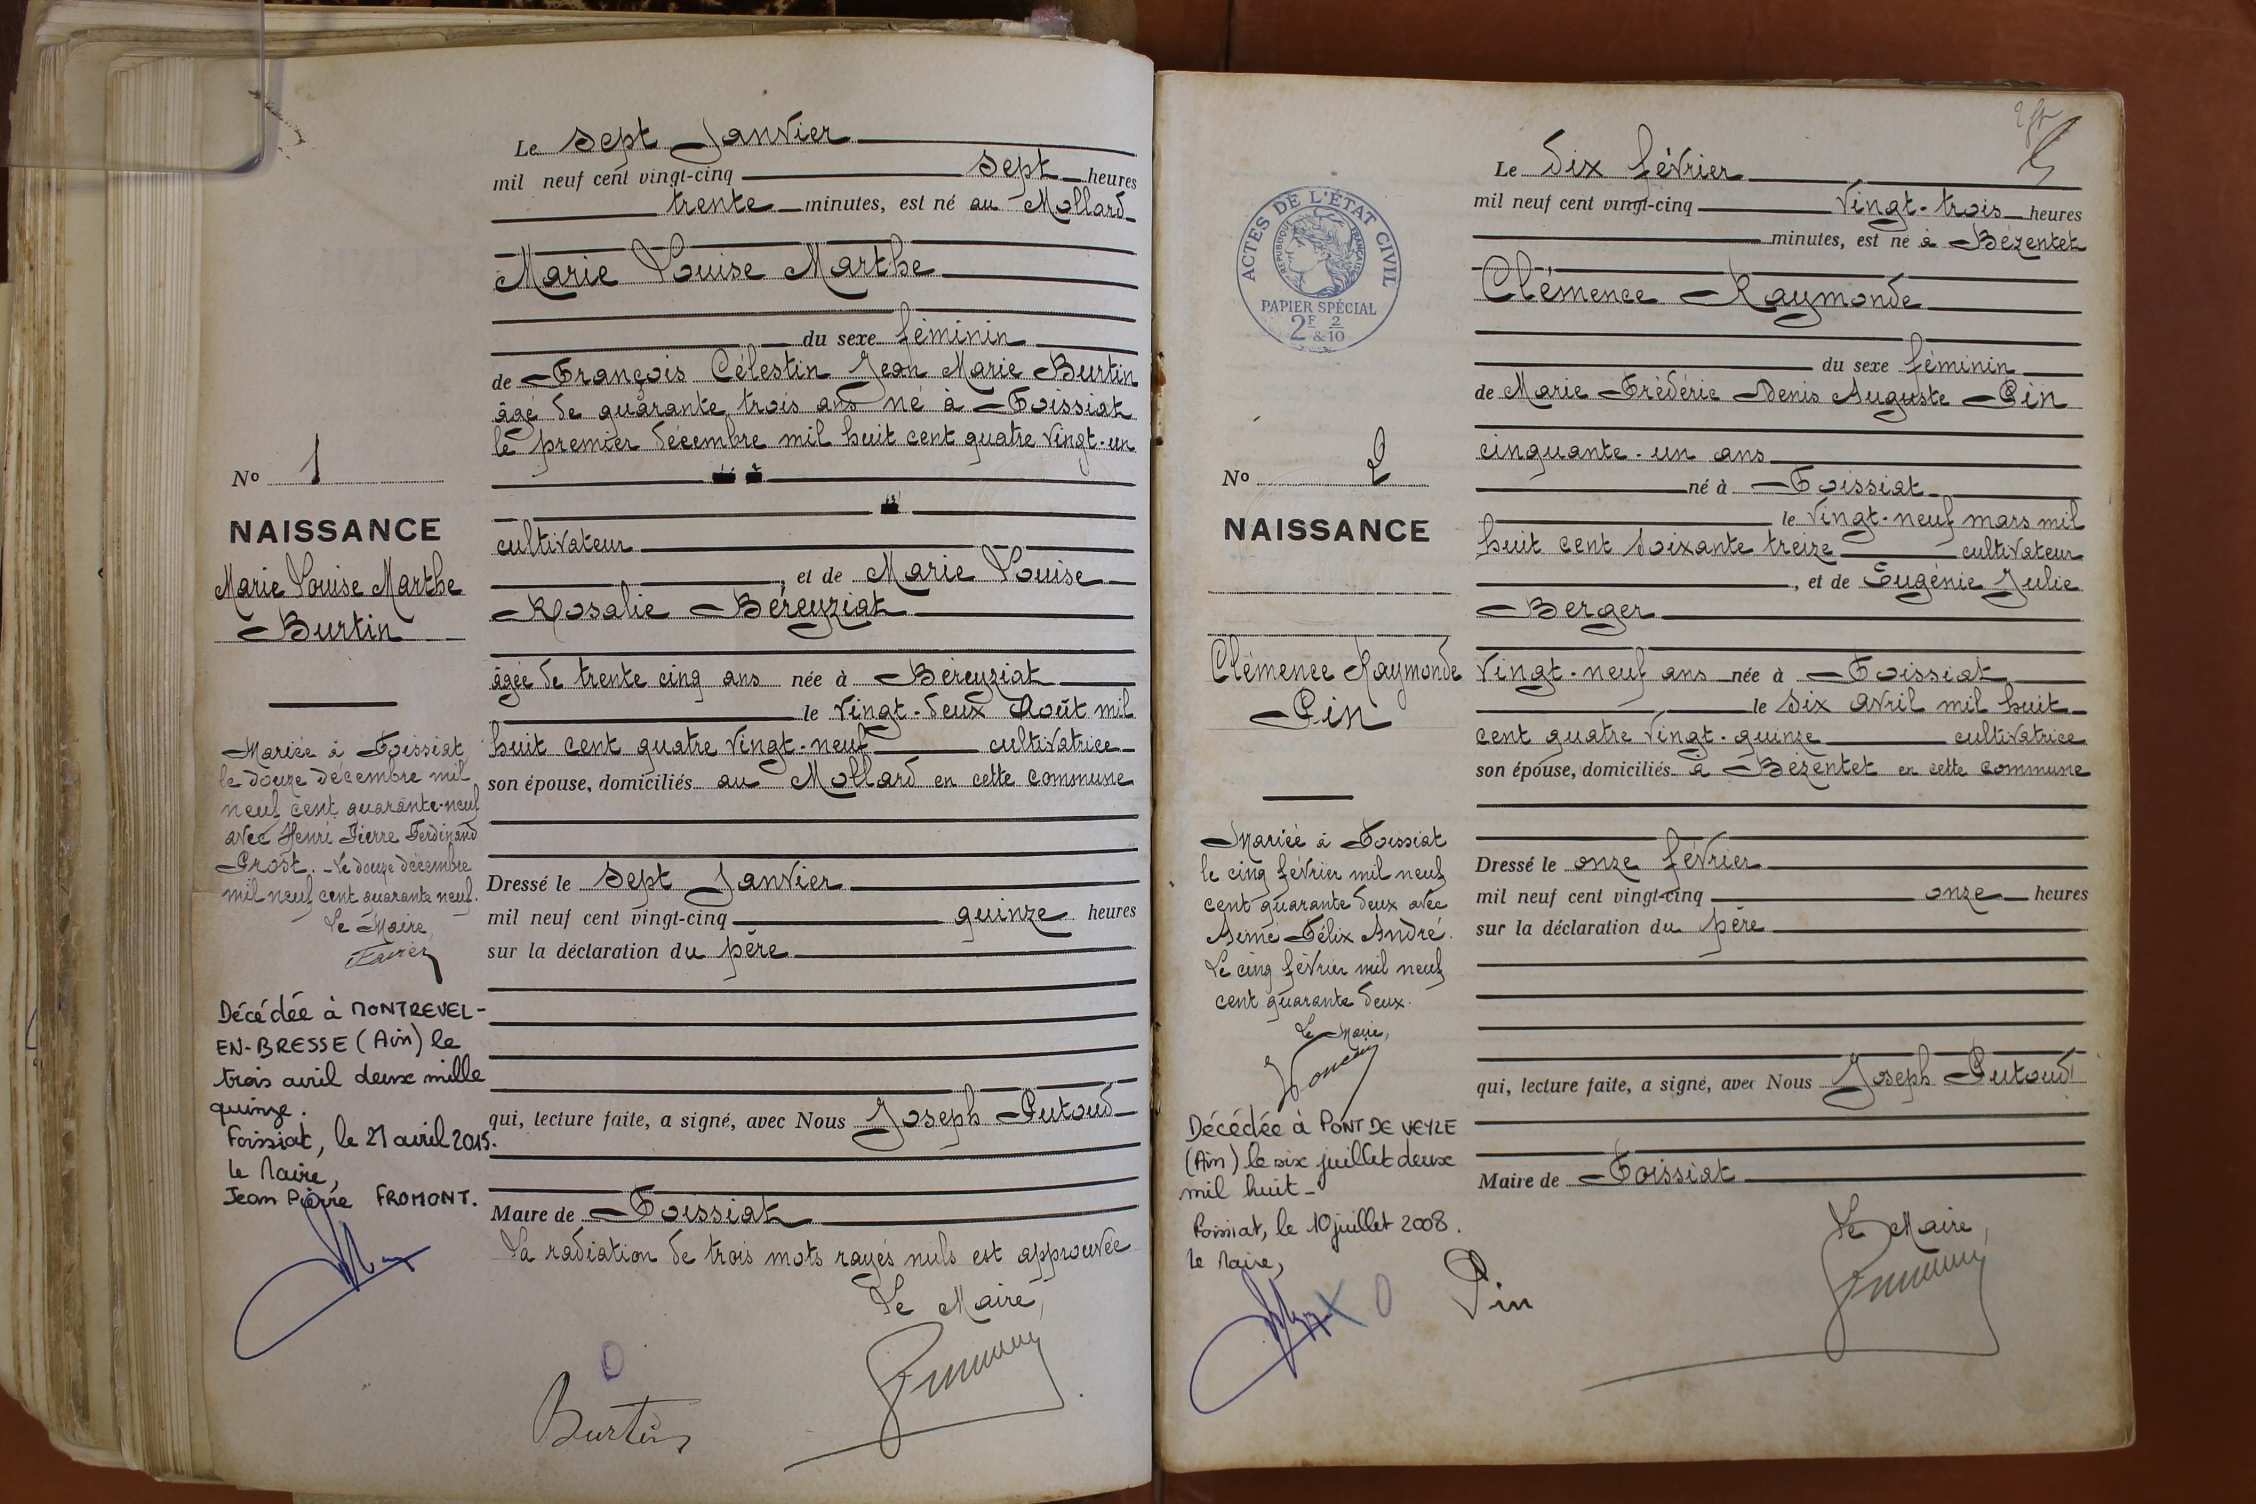 Le sept Janvier
mil neuf cent vingt-cinq sept heures
trente minutes, est né au Mollard
Marie Louise Marthe
du sexe féminin
de François Célestin Jean Marie Burtin
âgé de quarante trois ans né à Foissiat
le premier décembre mil huit cent quatre vingt-un
cultivateur
, et de Marie Louise
Rosalie Béreyziat
âgée de trente cinq ans née à Béreyziat
le vingt-deux Août mil
huit cent quatre vingt-neuf cultivatrice
son épouse, domiciliés au Mollard en cette commune
Dressé le sept Janvier
mil neuf cent vingt-cinq quinze heures
sur la déclaration du père
qui, lecture faite, a signé, avec Nous Joseph Putoud
Maire de Foissiat
La radiation de trois mots rayés nuls est approuvée
Le Maire,
Burtin
No 1
NAISSANCE
Marie Louise Marthe
Burtin
Mariée à Foissiat
le douze décembre mil
neuf cent quarante-neuf
avec Henri Pierre Ferdinand
Prost. Le douze décembre
mil neuf cent quarante neuf.
Le Maire,
Décédée à MONTREVEL-
EN-BRESSE (Ain) le
trois avril deux mille
quinze.
Foissiat, le 21 avril 2015.
Le Maire,
Jean Pierre FROMONT.
Le dix février
mil neuf cent vingt-cinq vingt-trois heures
minutes, est né à Bézentet
Clémence Raymonde
du sexe féminin
de Marie Frédéric Denis Auguste Pin
cinquante-un ans
né à Foissiat
le vingt-neuf mars mil
huit cent soixante treize cultivateur
, et de Eugénie Julie
Berger
vingt-neuf ans née à Foissiat
le six avril mil huit
cent quatre vingt-quinze cultivatrice
son épouse, domiciliés à Bézentet en cette commune
Dressé le onze février
mil neuf cent vingt-cinq onze heures
sur la déclaration du père
qui, lecture faite, a signé, avec Nous Joseph Putoud
Maire de Foissiat
Le Maire,
Pin
ACTES DE L'ÉTAT CIVIL
RÉPUBLIQUE FRANÇAISE
PAPIER SPÉCIAL
2F & 2/10
No 2
NAISSANCE
Clémence Raymonde
Pin
Mariée à Foissiat
le cinq février mil neuf
cent quarante deux avec
Aimé Félix André.
Le cinq février mil neuf
cent quarante deux.
Le Maire,
Décédée à PONT DE VEYLE
(Ain) le six juillet deux
mil huit-
Foissiat, le 10 juillet 2008.
Le Maire,